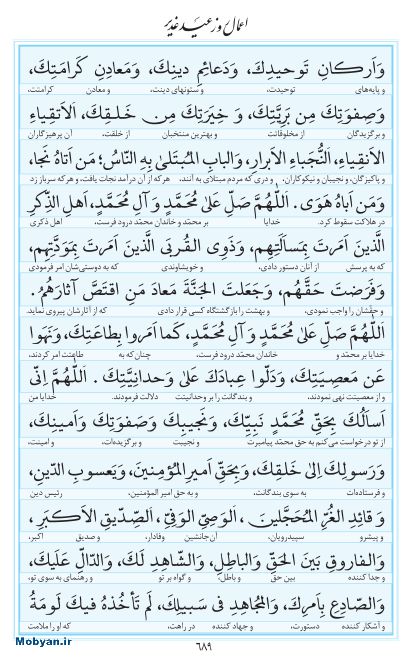 اعمال روز عید غدیر
وَاَركانِ تَوحيدِكَ، وَدَعائِمِ دينِكَ، وَمَعادِنِ كَرامَتِكَ،
و پایه‌های توحیدت، و ستونهای دینت، و معادن کرامتت،
وَصِفوَتِكَ مِن بَرِيَّتِكَ، وَ خِيَرَتِكَ مِن خَـلقِكَ، اَلاَتقِياءِ
و برگزیدگان از مخلوقاتت و بهترین منتخبان از خلقت، آن پرهیزگاران
الاَنقِياءِ، النُّجَباءِ الاَبرارِ، وَالبابِ المُبتَلىٰ بِهِ النّاسُ؛ مَن اَتاهُ نَجا،
و پاکیزگان، و نجیبان و نیکوکاران. و دری که مردم مبتلای به آنند. هر که از آن درآمد نجات یافت، و هر که سرباز زد
وَمَن اَباهُ هَوىٰ. اَللّٰهُمَّ صَلِّ عَلىٰ مُحَمَّدٍ وَآلِ مُحَمَّدٍ، اَهلِ الذِّكرِ
در هلاکت سقوط کرد. خدایا بر محمّد و خاندان محمّد درود فرست. اهل ذکری
الَّذينَ اَمَرتَ بِمَساَلَتِهِم، وَذَوِى القُربَى الَّذينَ اَمَرتَ بِمَوَدَّتِهِم،
که به پرسش از آنان دستور دادی، و خویشاوندی که به دوستی‌شان امر فرمودی
وَفَرَضتَ حَقَّهُم، وَجَعَلتَ الجَنَّةَ مَعادَ مَنِ اقتَصَّ آثارَهُم.
و حقشان را واجب نمودی، و بهشت را بازگشتگاه کسی قرار دادی که از آثارشان پیروی نماید.
اَللّٰهُمَّ صَلِّ عَلىٰ مُحَمَّدٍ وَ آلِ مُحَمَّدٍ، كَما اَمَروا بِطاعَتِكَ، وَنَهَوا
خدایا بر محمّد و خاندان محمّد درود فرست، چنان‌که به طاعتت امر کردند،
عَن مَعصِيَتِكَ، وَدَلّوا عِبادَكَ عَلىٰ وَحدانِيَّتِكَ. اَللّٰهُمَّ اِنّى
و از معصیتت نهی نمودند، و بندگانت را بر وحدانیتت دلالت فرمودند. خدایا من
اَساَلُكَ بِحَقِّ مُحَمَّدٍ نَبِيِّكَ، وَنَجيبِكَ وَصَفوَتِكَ وَاَمينِكَ،
از تو درخواست می‌کنم به حق محمّد پیامبرت و نجیبت و برگزیده‌ات، و امینت،
وَرَسولِكَ اِلىٰ خَلقِكَ، وَبِحَقِّ اَميرِ المُؤمِنينَ، وَيَعسوبِ الدّينِ،
و فرستاده‌ات به سوی بندگانت، و به حق امیر المؤمنین، رئیس دین
وَ قائِدِ الغُرِّ المُحَجَّلينَ، اَلوَصِىِّ الوَفِىِّ، الصِّدّيقِ الاَكبَرِ،
و پیشرو سپیدرویان، آن جانشین وفادار، و صدیق اکبر،
وَالفاروقِ بَينَ الحَقِّ وَالباطِلِ، وَالشّاهِدِ لَكَ، وَالدّالِّ عَلَيكَ،
و جدا کننده بین حق و باطل، و گواه بر تو و رهنمای به سوی تو،
وَالصّادِعِ بِاَمرِكَ، وَالمُجاهِدِ فى سَبيلِكَ، لَم تَأخُذهُ فيكَ لَومَةُ
و آشکار کننده دستورت، و جهاد کننده در راهت، که او را ملامت
۶۸۹
Mobyan.ir